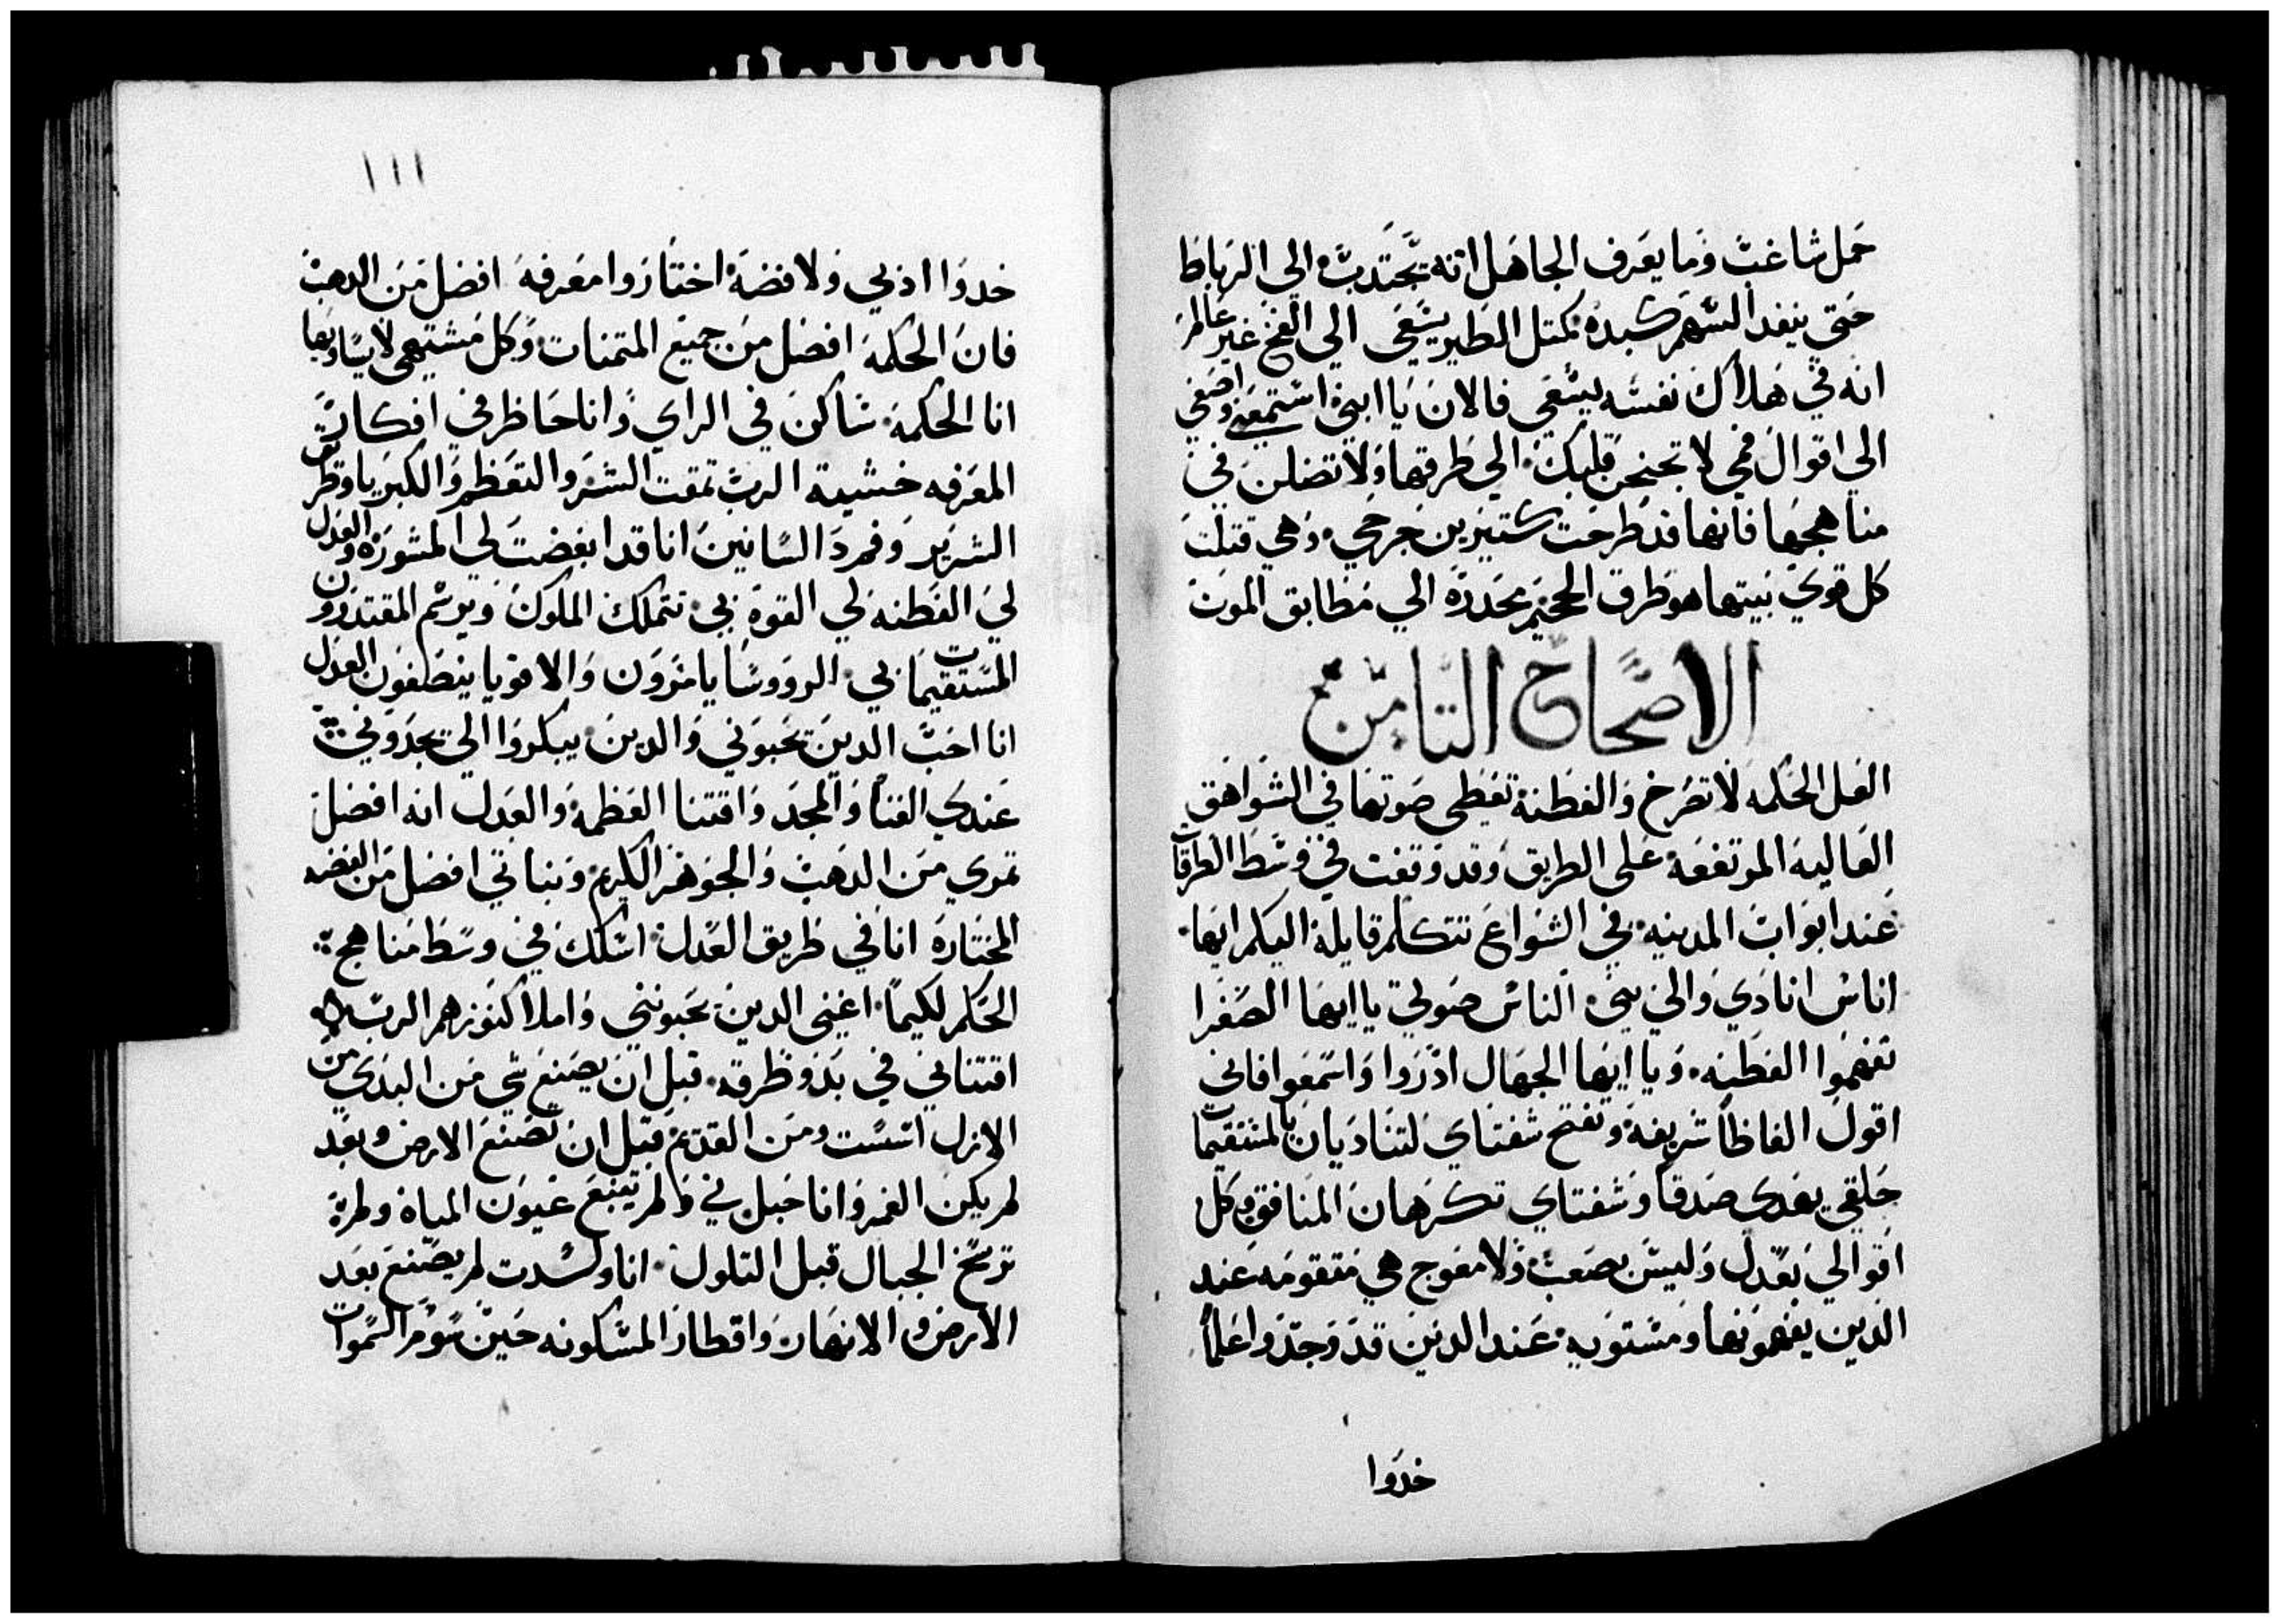 حمل شاغب وما يعرف الجاهل انه يجتدب الي الرباط
حتي ينفد السهم كبده كمتل الطير يسعي الي الفخ غير عالم
انه في هلاك نفسه يسعي فالان يا ابني استمعني واصغي
الي اقوال فمي لا تجنحن قلبك الي طرقها ولا تضلن في
مناهجها فانها قد طرحت كتيرين جرحي وهي قتلت
كل قوي بيتها هو طرق الجحيم محدره الي مطابق الموت
الاصحاح التامن
العل الحكمه لا تصرخ والفطنة تعطي صوتها في الشواهق
العاليه المرتفعة علي الطريق وقد وقفت في وسط الطرقات
عند ابواب المدينه في الشوارع تتكلم قايلة اليكم ايها
اناس انادي والي بني الناس صوتي يا ايها الصغرا
تفهموا الفطنه ويا ايها الجهال ادروا واسمعوا فاني
اقول الفاظا شريفة وتفتح شفتاي لتناديان بالمستقيمات
حلقي يهدي صدقا وشفتاي تكرهان المنافق وكل
اقوالي بعدل وليس بصعب ولا معوج هي متقومه عند
الدين يفهمونها ومستويه عند الدين قد وجدوا علما
خدوا
١١١
خدوا ادبي ولا فضة اختاروا معرفة افضل من الدهب
فان الحكمة افضل من جميع المتمنات وكل مشتهي لا يساويها
انا الحكمة ساكن في الراي وانا حاظر في افكارت
المعرفه خشية الرب تمقت الشر والتعظم والكبريا وطرق
الشرير وفم د السانين انا قد ابغضت لي المشورة والعدل
لي الفطنه لي القوة بي تتملك الملوك ويرسم المقتدرون
المستقيمات بي الرووسا يامرون والاقويا ينصفون العدل
انا احب الدين يحبوني والدين يبكروا الي يجدوني
عندي الغنا والمجد واقتنا العظمة والعدل انه افضل
تمري من الدهب والجوهر الكريم ونباتي افضل من الفضه
المختارة انا في طريق العدل اسلك في وسط مناهج
الحكم لكيما اغني الدين يحبونني واملا كنوزهم الرب
اقتناني في بدو طرقه قبل ان يصنع شي من البدي من
الازل اسست ومن القديم قبل ان تصنع الارض وبعد
لم يكن الغمر وانا حبل بي ولم تينبع عيون المياة ولم
ترسخ الجبال قبل التلول انا ولدت لم يصنع بعد
الارض و الانهار واقطار المسكونه حين سوم السموات